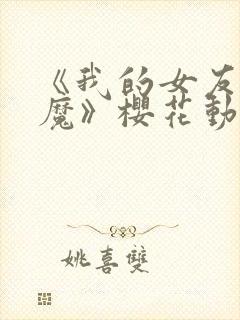 《我的女友
魔》櫻花動
姚喜雙